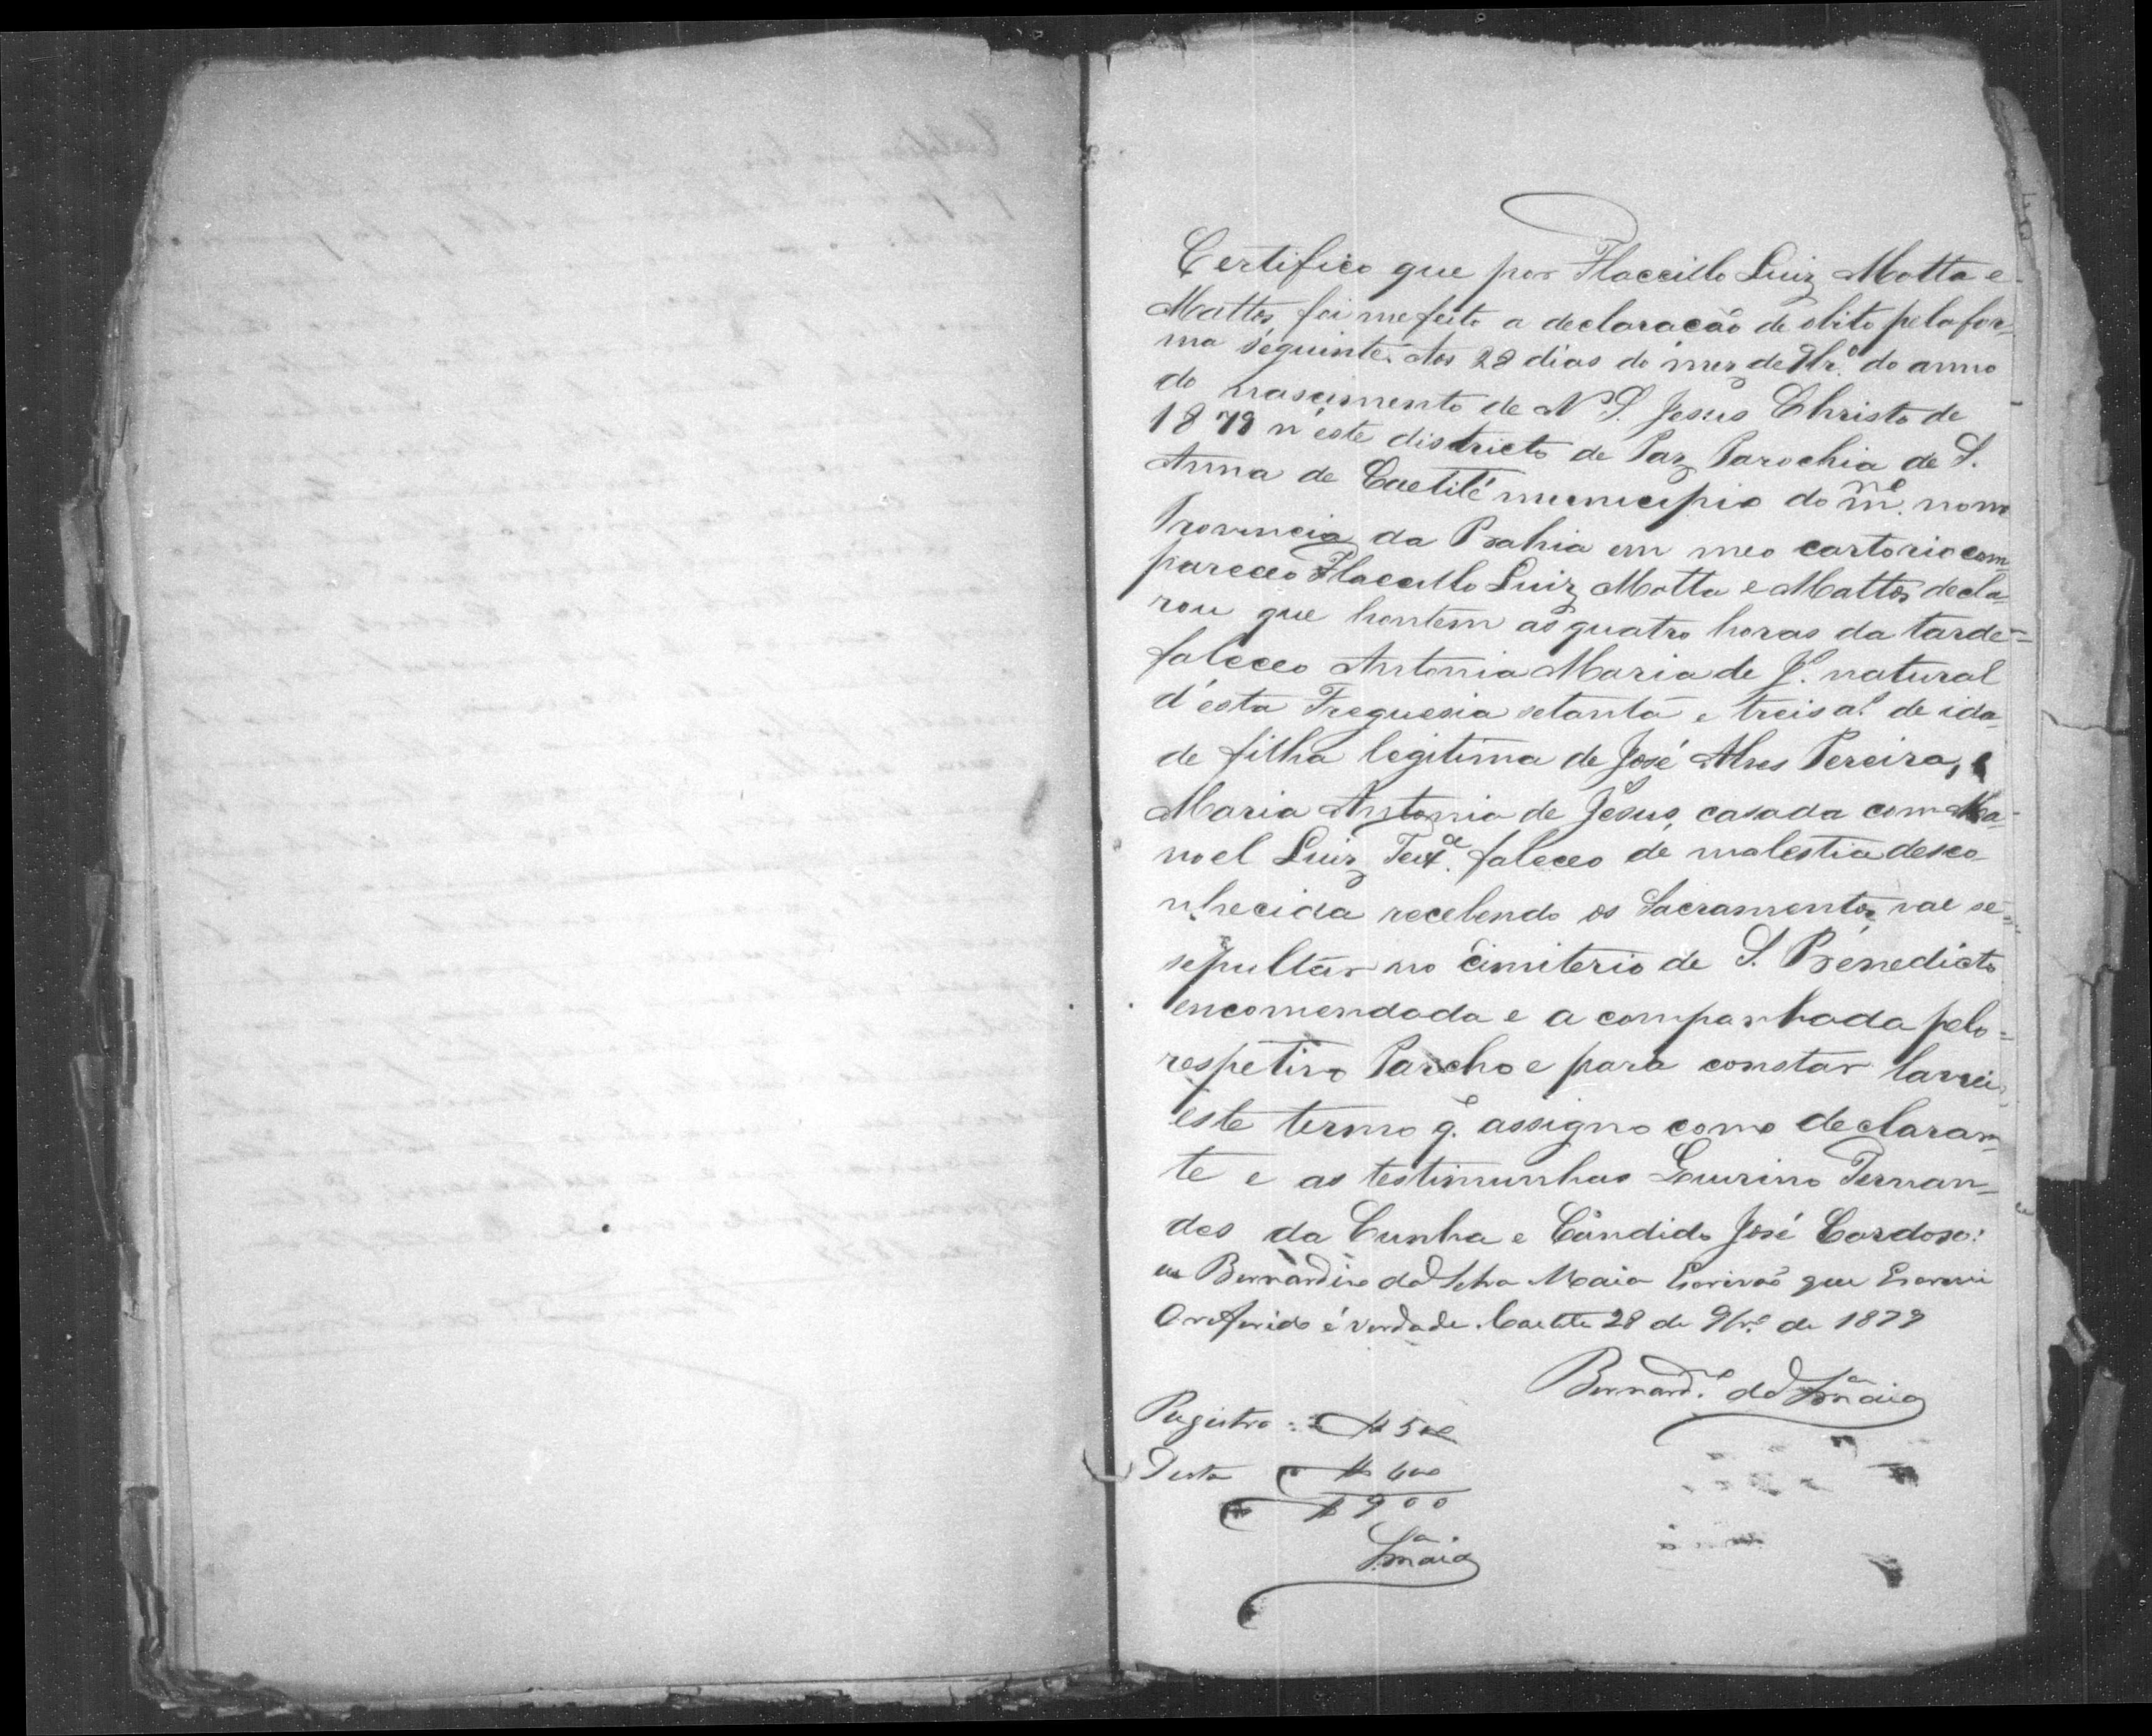 Certifico que por Flaccillo Luiz Motta e
Mattos, foi me feito a declaração de obito pela for-
ma seguinte. Aos 28 dias do mez de 9br.º do anno
do nascimento de N S. Jesus Christo de
1879 n'este districto de Paz, Parochia de S.
Anna de Caetité municipio do m.mo nome
Provincia da Bahia em meo cartorio com
pareceo Flaccillo Luiz Motta e Mattos, decla-
rou que hontem as quatro horas da tarde=
faleceo Antonia Maria de J.º natural
d'esta Freguesia setanta e treis a.º de ida
de filha legitima de José Alves Pereira, e
Maria Antonia de Jesus, casada com Ma-
noel Luiz Teix.ª faleceo de molestia desco-
nhecida recebendo os Sacramentos, vae se=
sepultar no cimiterio de S. Benedicto
encomendada e a companhada pelo=
respetivo Parocho e para constar lavrei
este termo q. assigno como declaran-
te e as testimunhas Lourino Fernan-
des da Cunha e Cândido José Cardoso:
eu Bernardino da Silva Maia Escrivaõ que Escrevi
O referido é verdade. Caetite 28 de 9br.º de 1879
Bernard.º da S.ª Maia
Registro: $ 500
Desta $ 400
$ 900
S.ª Maia